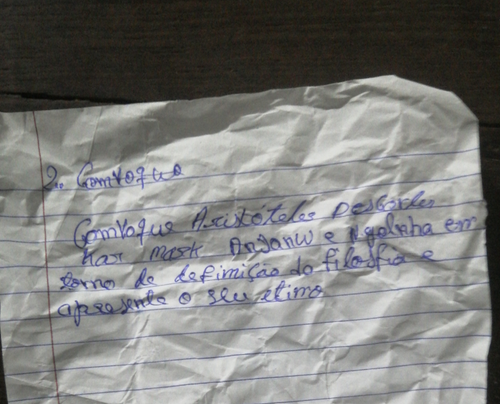 2.. Convoque
Convoque Aristóteles Descartes
Kar Mark Anyanw e Ngoenha em
torno de definição da filosofia e
apresente o seu étimo